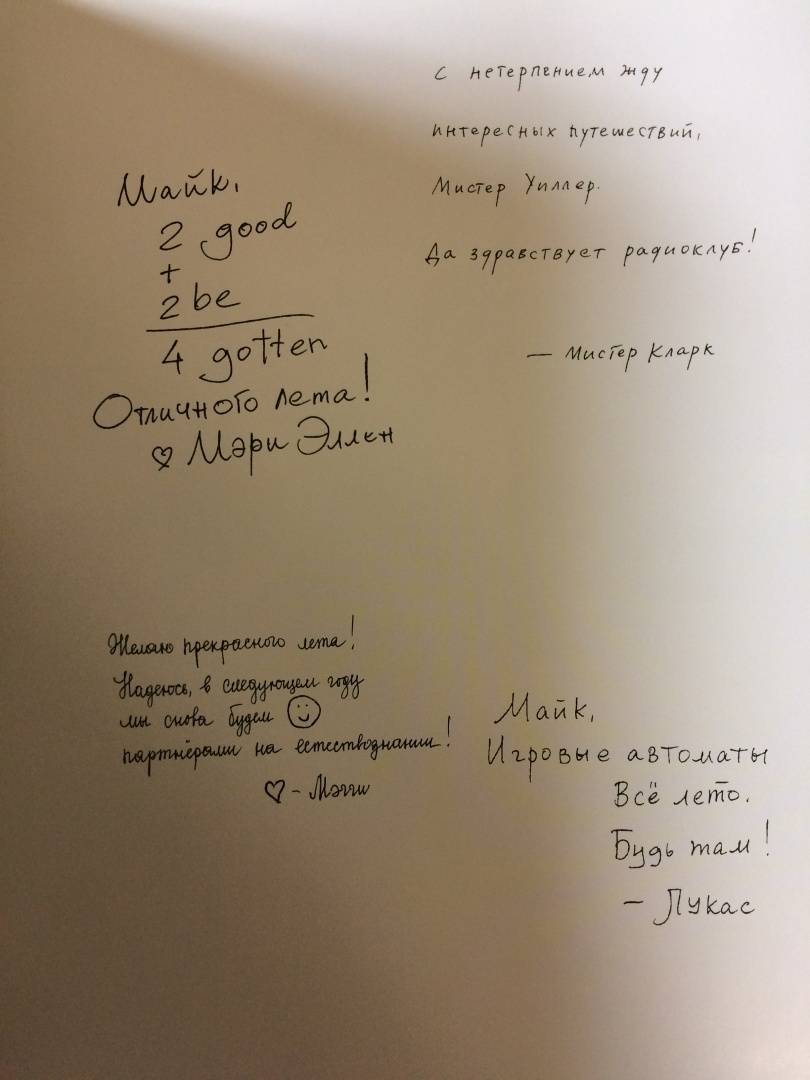 Майк,
2 good
+
2 be
4 gotten
Отличного лета!
♡ Мэри Эллен
С нетерпением жду
интересных путешествий,
Мистер Уиллер.
Да здравствует радиоклуб!
— Мистер Кларк
Желаю прекрасного лета!
Надеюсь, в следующем году
мы снова будем ☺
партнёрами на естествознании!
♡ - Мэгги
Майк,
Игровые автоматы
Всё лето.
Будь там!
— Лукас